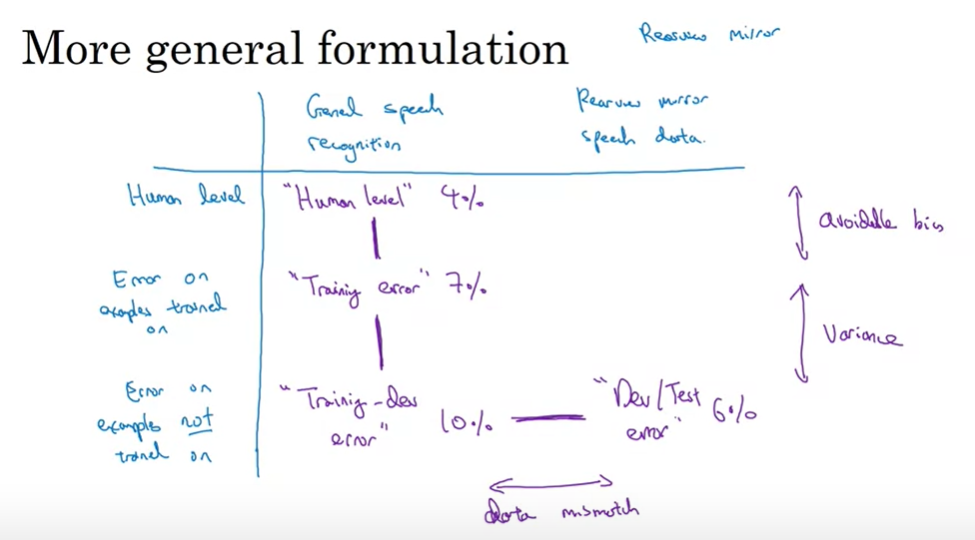 More general formulation
Rearview mirror
General speech
recognition
Rearview mirror
speech data.
Human level
"Human level" 4%
avoidable bias
Error on
examples trained
on
"Training error" 7%
Variance
Error on
examples not
trained on
"Training-dev
error" 10%
"Dev/Test
error" 6%
data mismatch